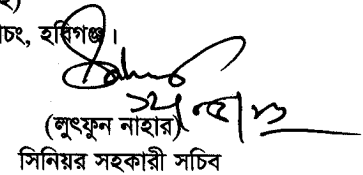 চং, হবিগঞ্জ।
(লুৎফুন নাহার)
সিনিয়র সহকারী সচিব